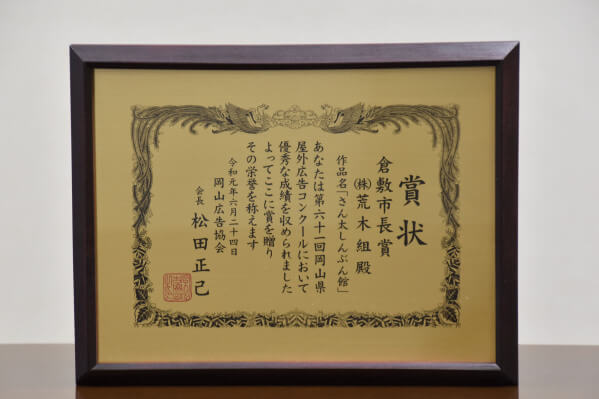 賞状
倉敷市長賞
㈱荒木組殿
作品名「さん太しんぶん館」
あなたは第六十一回岡山県
屋外広告コンクールにおいて
優秀な成績を収められました
よってここに賞を贈り
その栄誉を称えます
令和元年六月二十四日
岡山広告協会
会長 松田正己